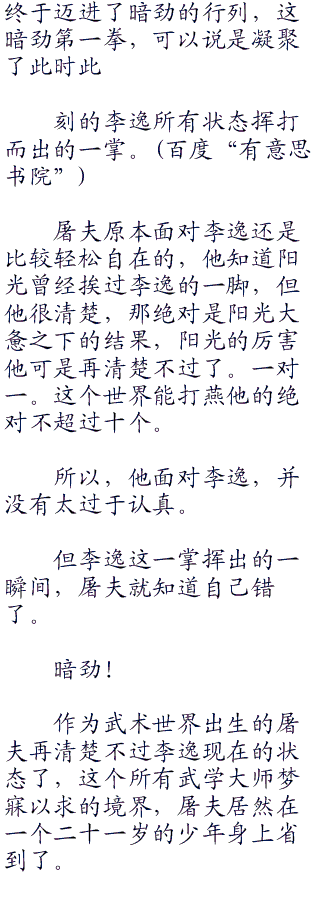 终于迈进了暗劲的行列，这
暗劲第一拳，可以说是凝聚
了此时此
刻的李逸所有状态挥打
而出的一掌。(百度“有意思
书院”)
屠夫原本面对李逸还是
比较轻松自在的，他知道阳
光曾经挨过李逸的一脚，但
他很清楚，那绝对是阳光大
惫之下的结果，阳光的厉害
他可是再清楚不过了。一对
一。这个世界能打燕他的绝
对不超过十个。
所以，他面对李逸，并
没有太过于认真。
但李逸这一掌挥出的一
瞬间，屠夫就知道自己错
了。
暗劲！
作为武术世界出生的屠
夫再清楚不过李逸现在的状
态了，这个所有武学大师梦
寐以求的境界，屠夫居然在
一个二十一岁的少年身上省
到了。